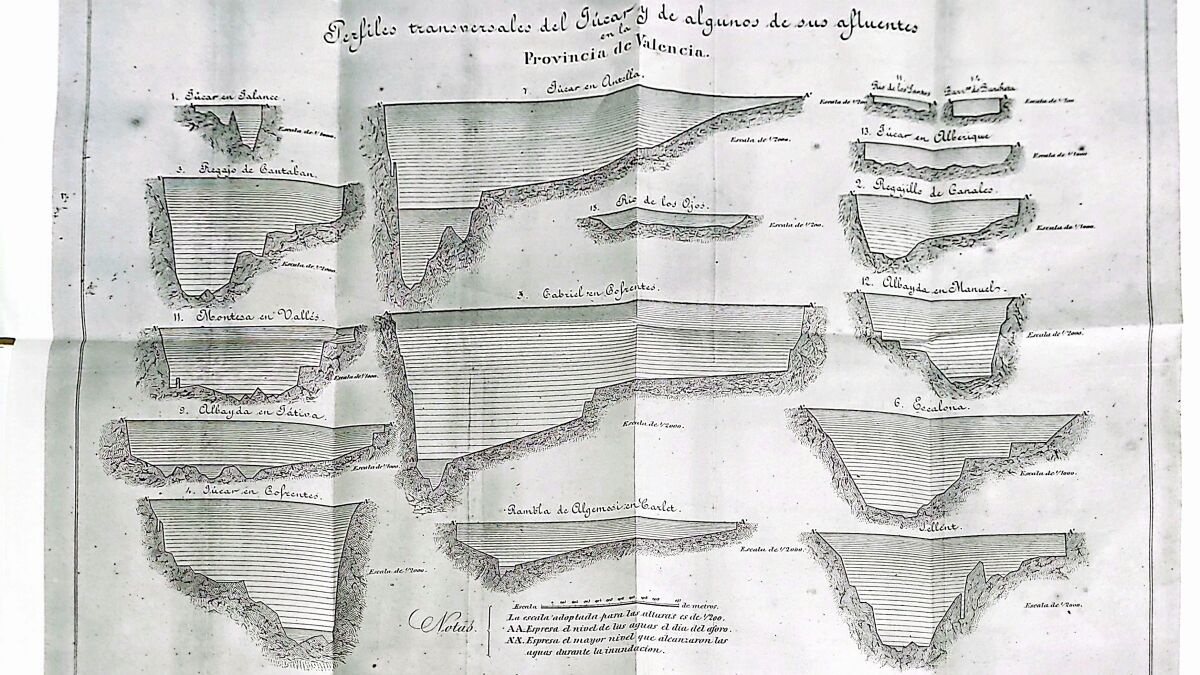 Perfiles transversales del Júcar y de algunos de sus afluentes
en la
Provincia de Valencia.
1. Júcar en Jalance
Escala de 1/1000.
7. Júcar en Antella.
Escala de 1/2000.
11
Rio de los Santos
14
Barr.co de Barcheta
13. Júcar en Alberique
Escala de 1/1000
3. Regajo de Cantaban.
Escala de 1/1000
15. Rio de los Ojos.
Escala de 1/200.
2. Regajillo de Canales.
Escala de 1/1000.
11. Montesa en Vallés.
Escala de 1/1000.
5. Gabriel en Cofrentes.
Escala de 1/2000.
12. Albayda en Manuel
Escala de 1/2000.
9. Albayda en Játiva.
Escala de 1/1000
6. Escalona.
Escala de 1/1000.
4. Júcar en Cofrentes.
Escala de 1/2000.
Rambla de Algemesi en Carlet.
Escala de 1/2000.
8. Sellent.
Escala de 1/2000.
Escala
de metros.
Notas.
La escala adoptada para las alturas es de 1/200.
AA. Espresa el nivel de las aguas el dia del aforo.
XX. Espresa el mayor nivel que alcanzaron las
aguas durante la inundacion.